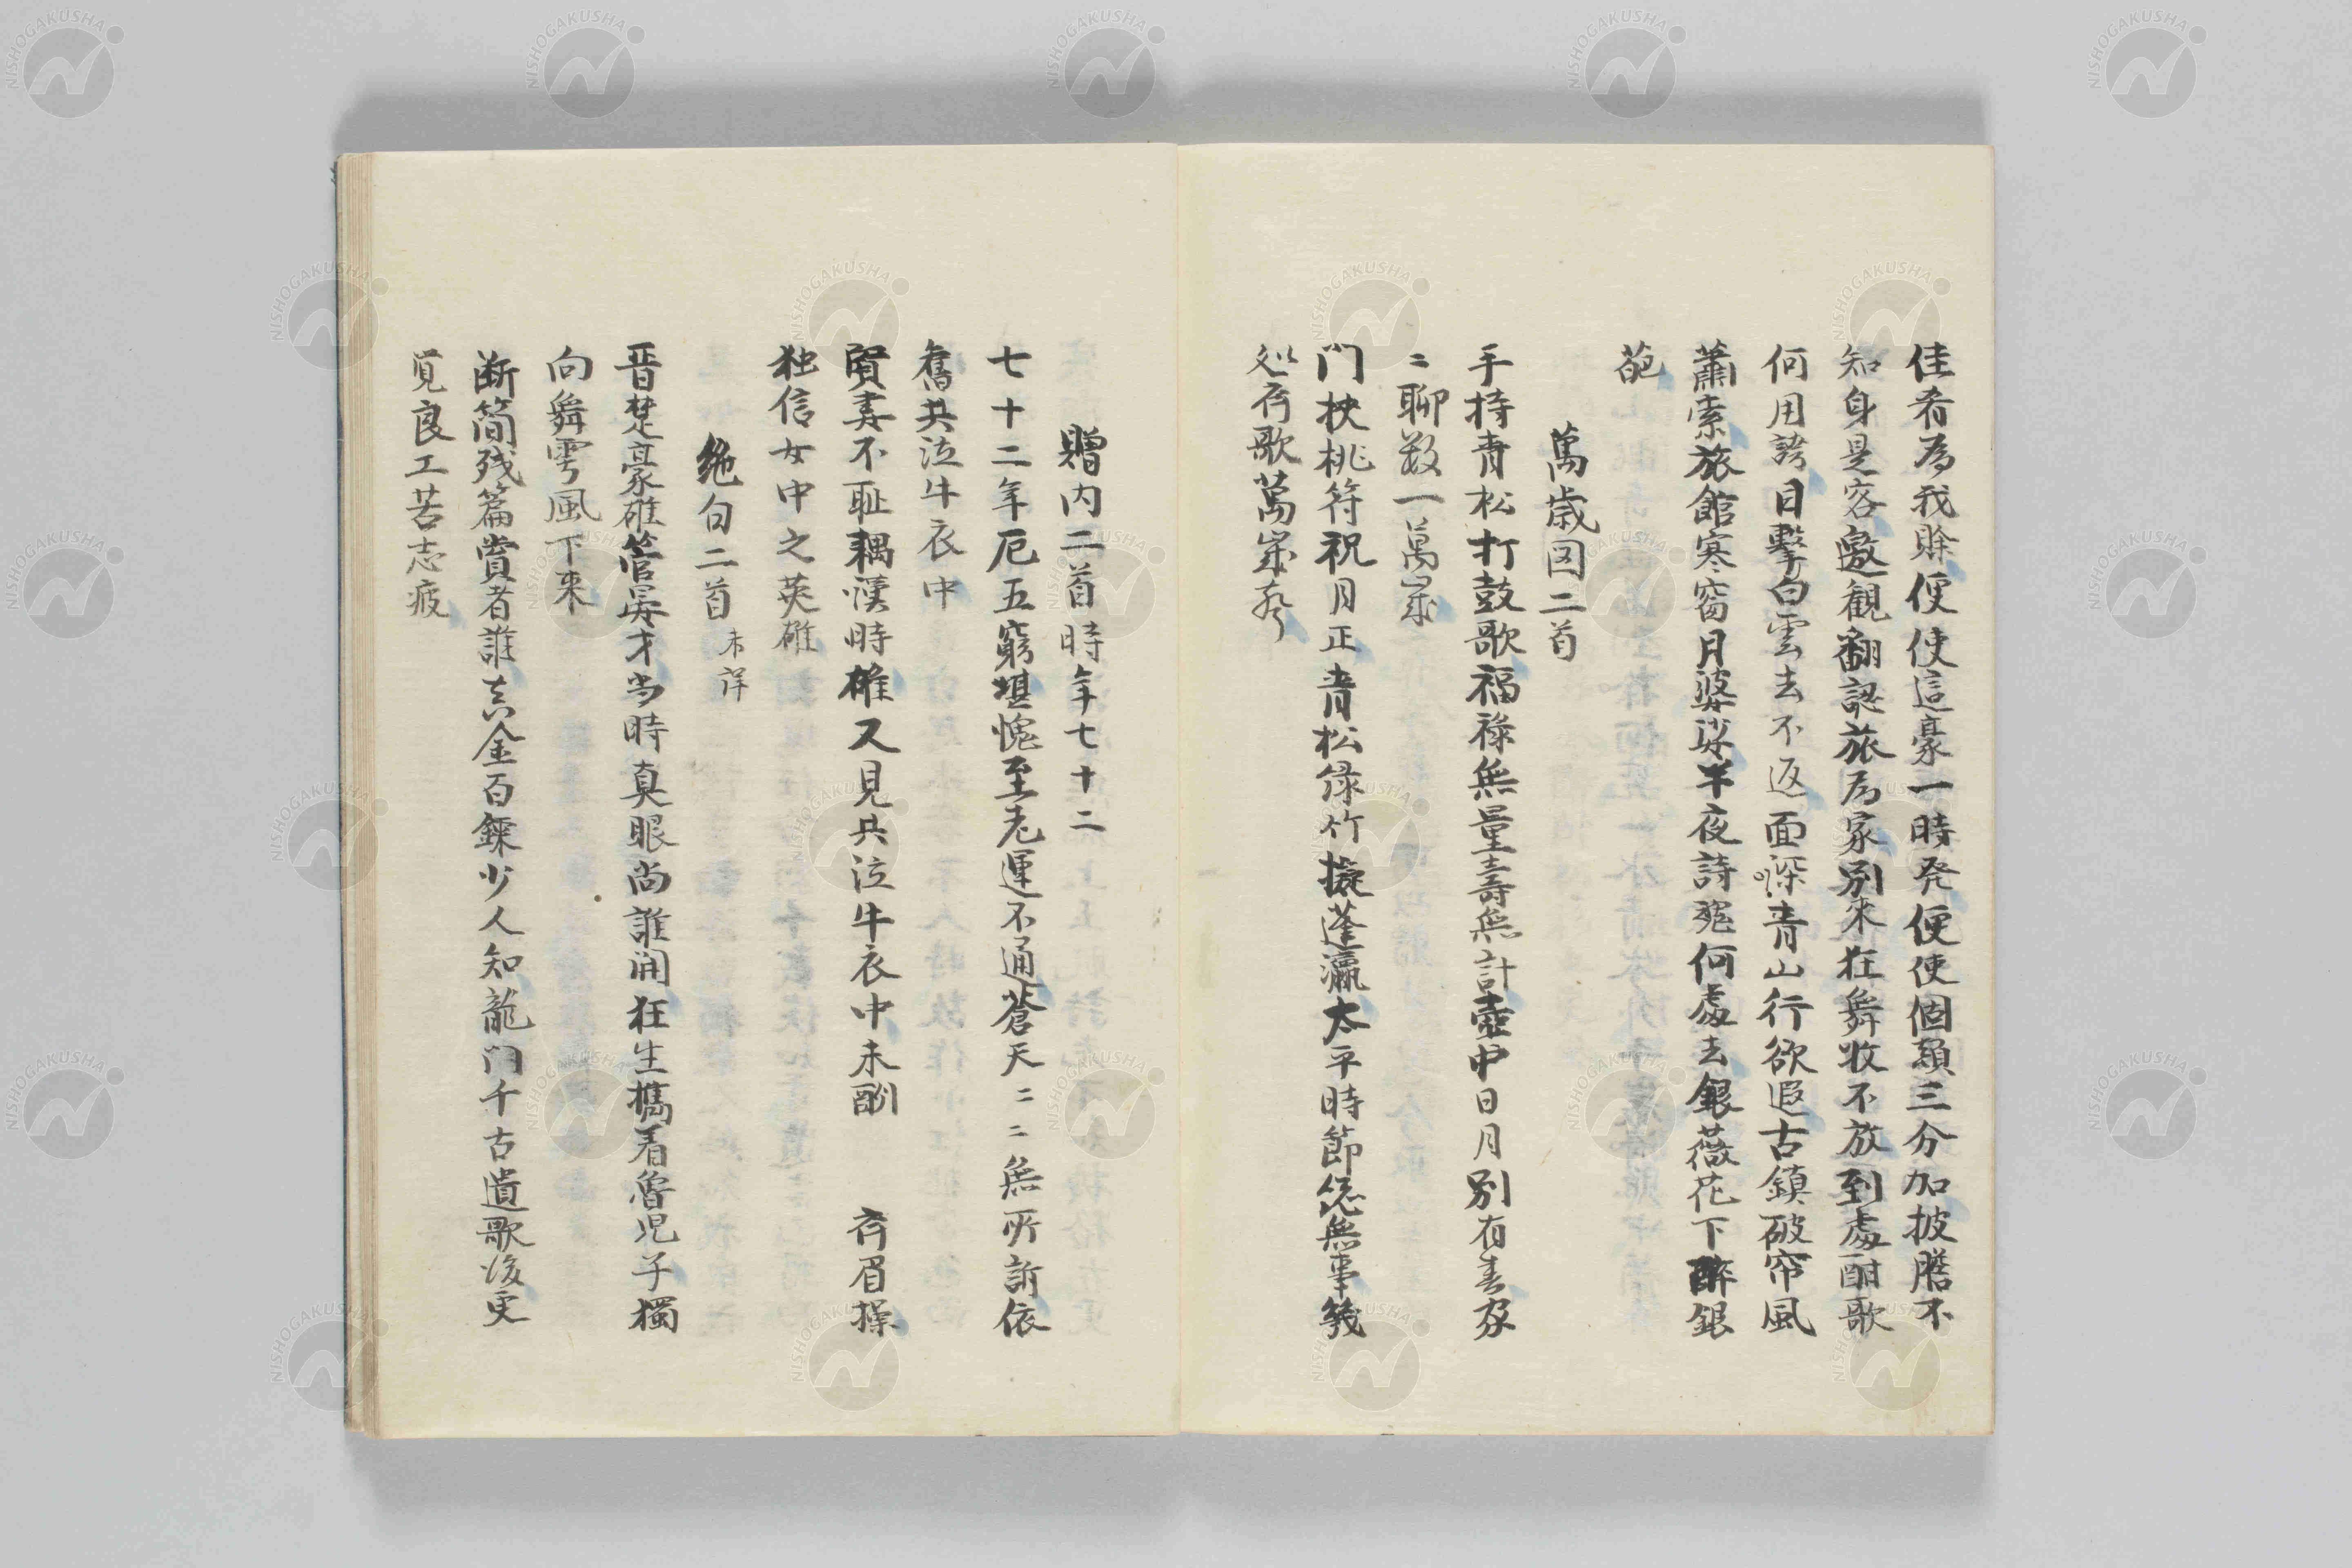 佳肴為我賖便使這豪一時発便使個顔三分加披膽不
知身是客邀観翻認旅為家別来狂舞收不放到處酣歌
何用誇目撃白雲去不返面深青山行欲遐古鎮破帘風
蕭索旅館寒窗月婆娑半夜詩魂何處去銀薇花下醉銀
葩
萬歳図二首
手持青松打鼓歌福祿無量壽無計壷中日月別有春家
〻聊数一萬歳
門挟桃符祝月正青松緑竹擬蓬瀛太平時節㤀無事幾
処齊歌萬歳声
贈内二首時年七十二
七十二年厄五窮堪愧至老運不通蒼天〻〻無所訴依
舊共泣牛衣中
賢妻不耻耦漢時雄又見共泣牛衣中未酬 齊眉操
独信女中之英雄
絶句二首 未詳
晋楚豪雄管晏才当時真眼尚誰開狂生携着魯児子獨
向舞雩風下来
断簡残篇賞者誰真金百鍊少人知龍門千古遺歌後更
覓良工苦志疲
NISHOGAKUSHA